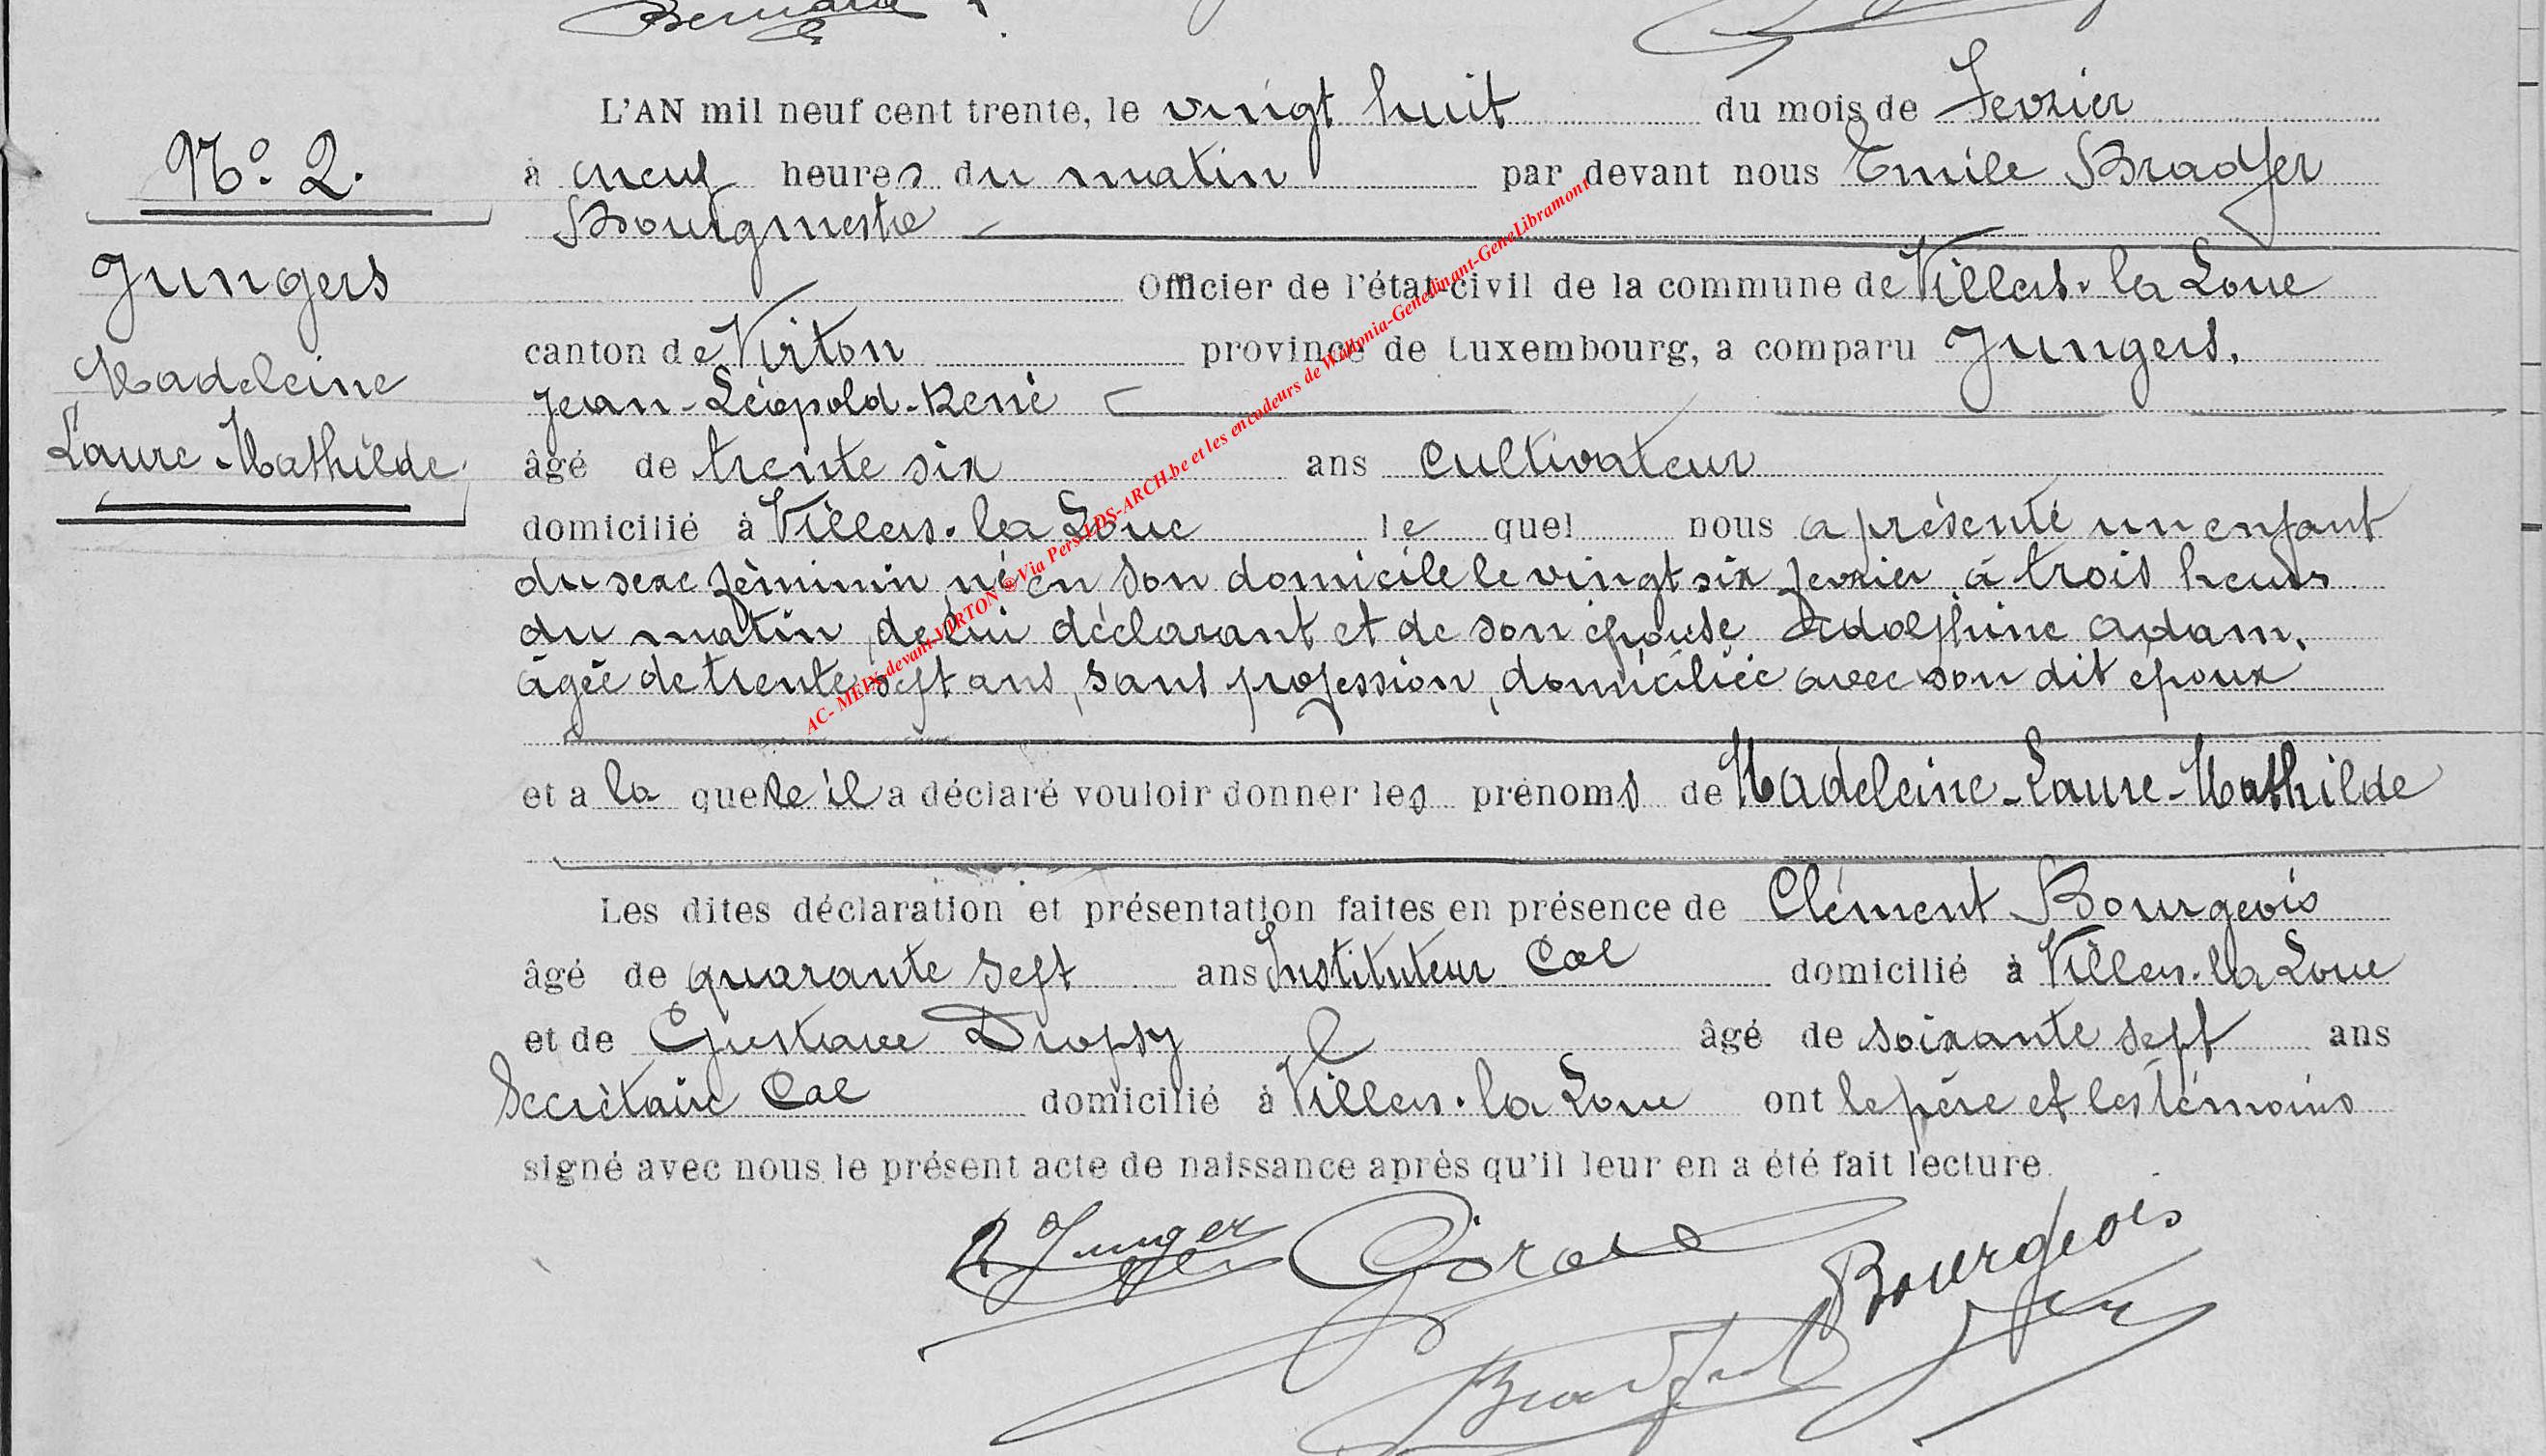 Bernard
L'AN mil neuf cent trente, le vingt huit du mois de Fevrier
N° 2.
à neuf heures du matin par devant nous Emile Bradfer
Bourgmestre
Jungers
Officier de l'état-civil de la commune de Villers-la Loue
canton de Virton province de Luxembourg, a comparu Jungers,
Madeleine
Jean-Léopold-René
Laure-Mathilde
âgé de trente six ans Cultivateur
domicilié à Villers-la Loue le quel nous a présenté un enfant
du sexe féminin, né en son domicile le vingt six fevrier à trois heures
du matin, de lui déclarant et de son épouse Adolphine Adam,
âgée de trente sept ans, sans profession, domiciliée avec son dit époux
et a la quelle il a déclaré vouloir donner les prénoms de Madeleine-Laure-Mathilde
Les dites déclaration et présentation faites en présence de Clément Bourgeois
âgé de quarante sept ans Instituteur Cal domicilié à Villers-la Loue
et de Gustave Dropsy âgé de soixante sept ans
Secrétaire Cal domicilié à Villers-la Loue ont le père et les témoins
signé avec nous le présent acte de naissance après qu'il leur en a été fait lecture.
R Jungers Bourgeois
Bradfer
AC- MEIX-devant-VIRTON ® Via Pers LDS-ARCH.be et les encodeurs de Wallonia-Genedinant-GeneLibramont